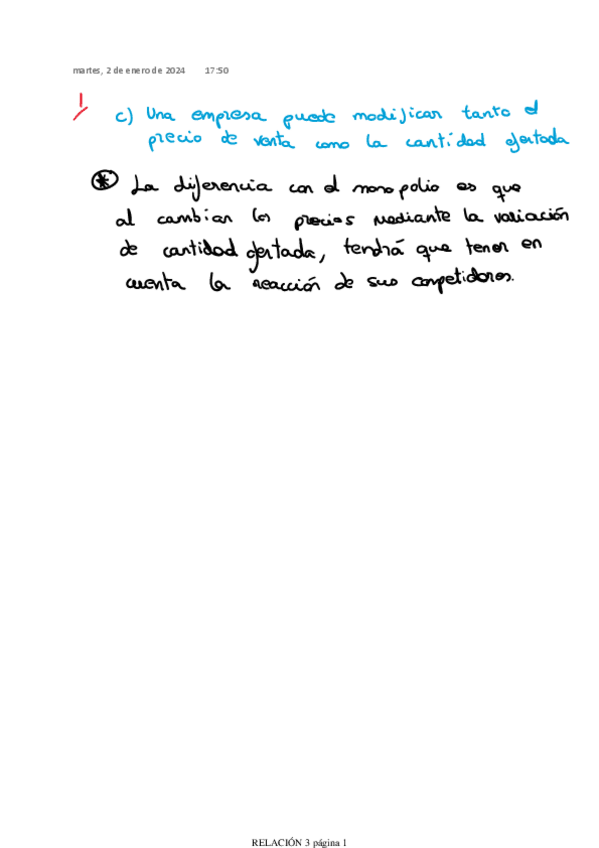 martes, 2 de enero de 2024 17:50
1/
c) Una empresa puede modificar tanto el
precio de venta como la cantidad ofertada
* La diferencia con el monopolio es que
al cambiar los precios mediante la variación
de cantidad ofertada, tendrá que tener en
cuenta la reacción de sus competidores.
RELACIÓN 3 página 1